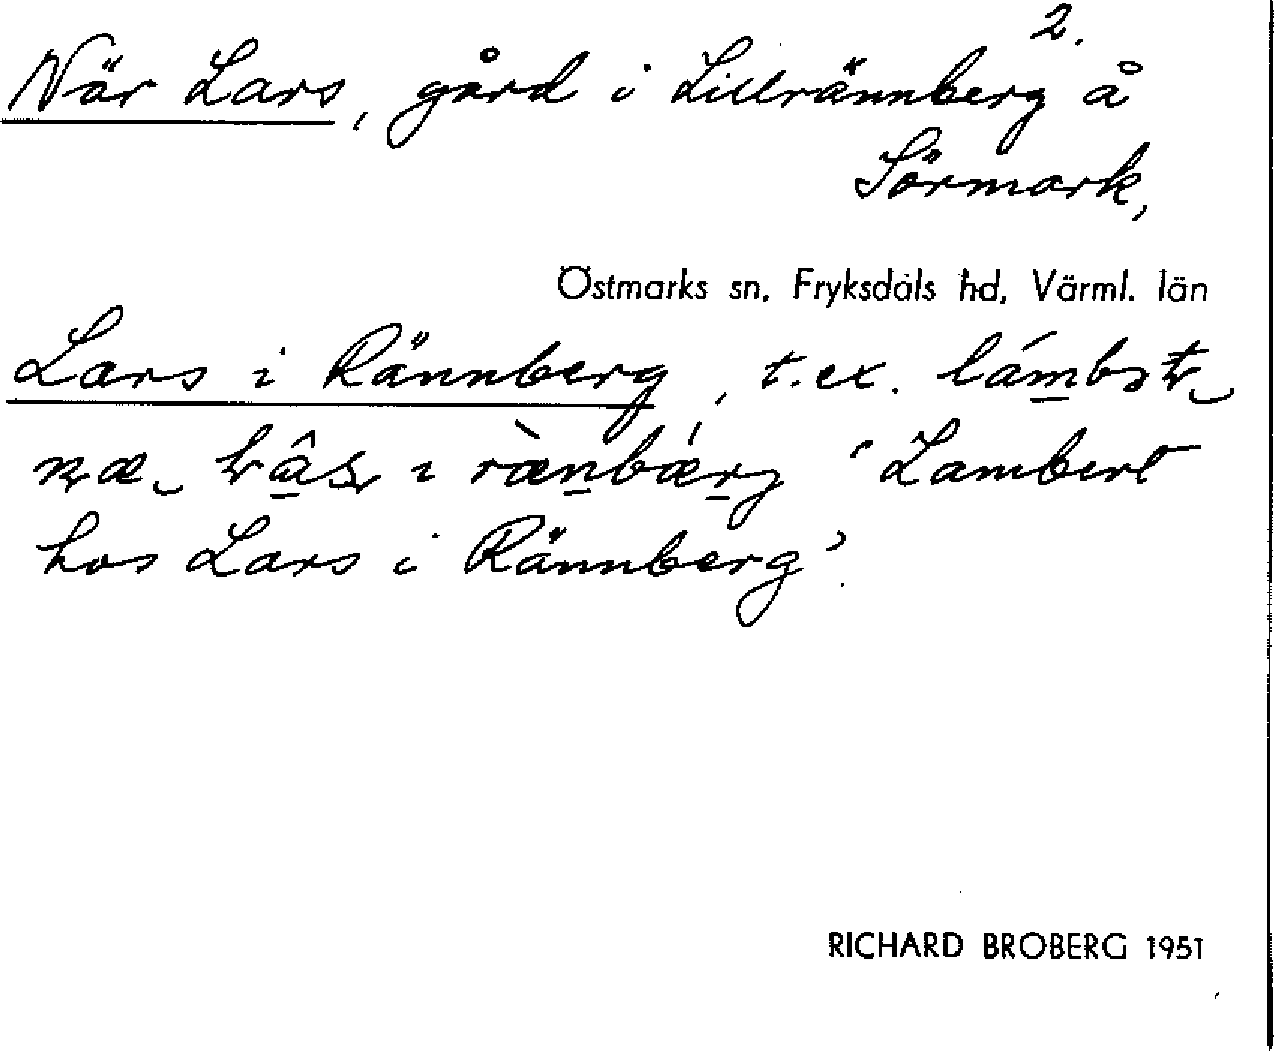 2.
När Lars, gård i Lillrännberg å
Sörmark,
Östmarks sn, Fryksdals hd, Värml. län
Lars i Rännberg, t.ex.
i rænbærg 'Lambert
hos Lars i Rännberg'.
RICHARD BROBERG 1951